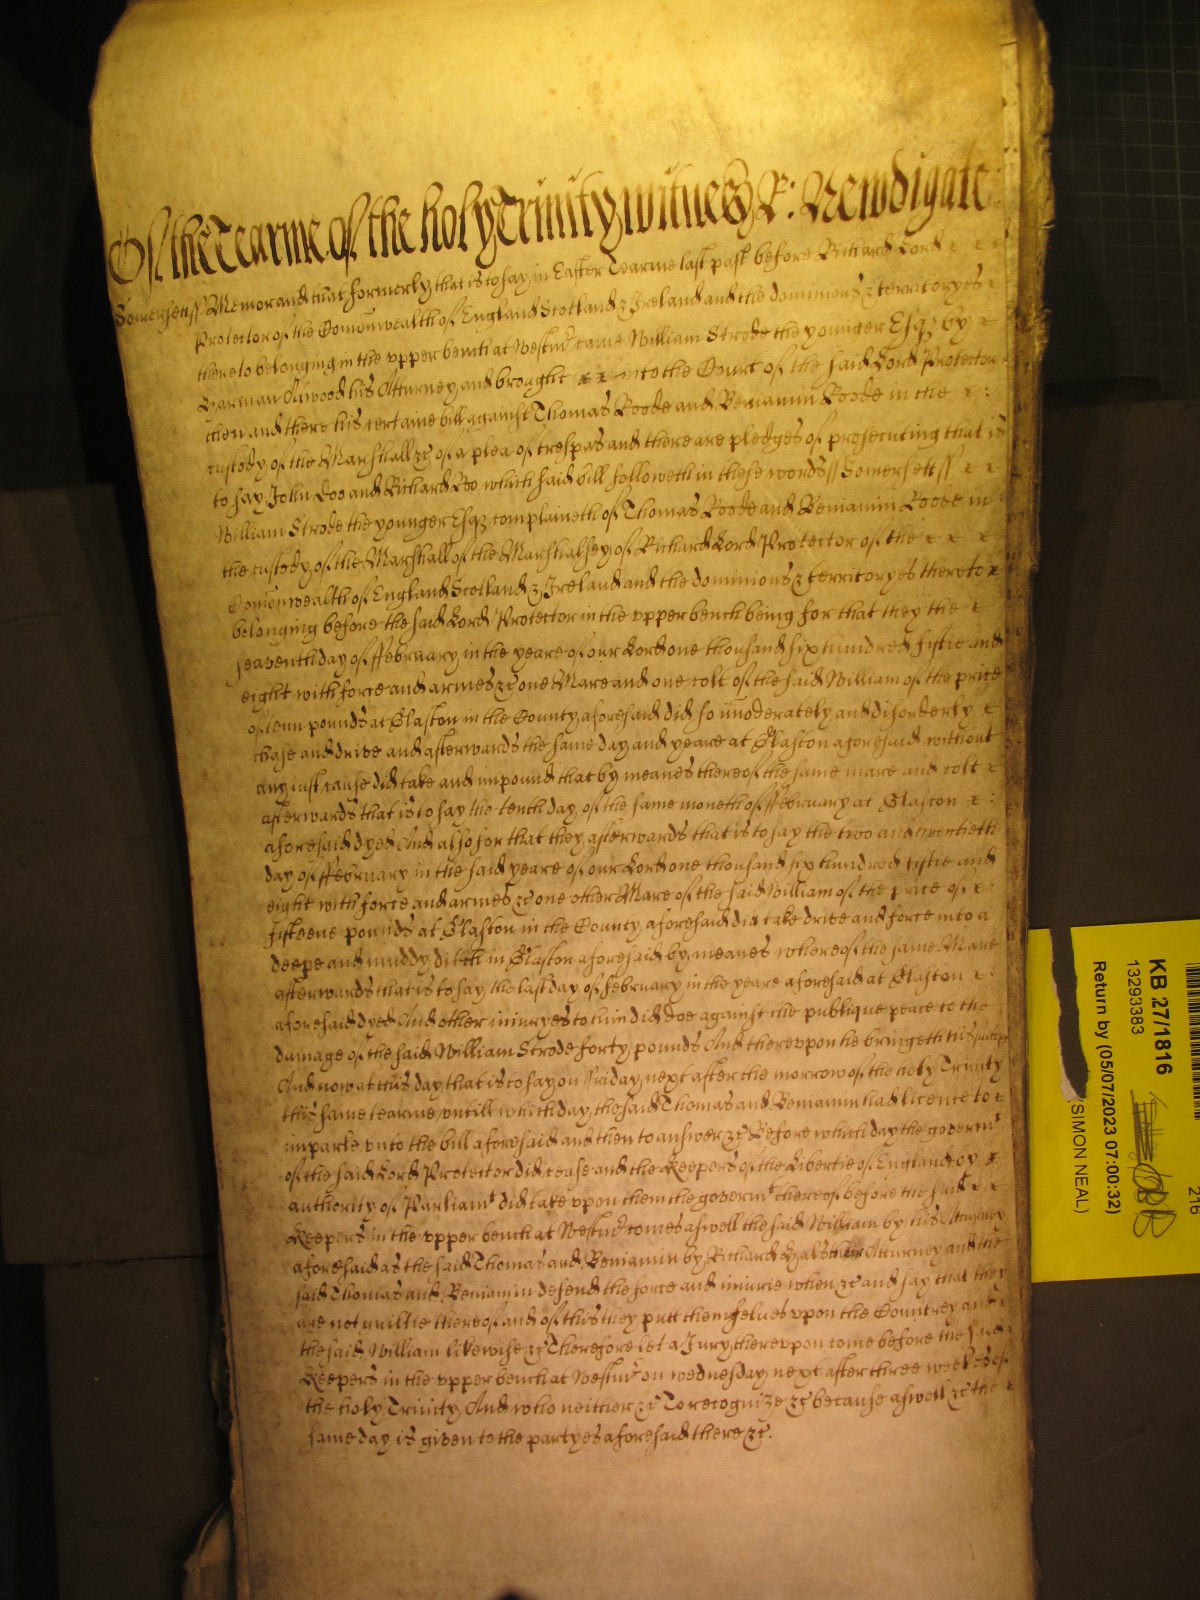 Of the Tearme of the holy Trinity witnes R: Newdigate
Somersett ss Memorand that formerly that is to say in Easter Tearme last past before Richard Lord
Protector of the Comonwealth of England Scotland & Ireland and the dominions & territoryes
thereto belonging in the upper bench at Westmr came William Strode the younger Esqz by
Harman his Atturney and brought into the Court of the said Lord Protector
then and there his certaine bill against Thomas Roode and Beniamin Roode in the
custody of the Marshall &c of a plea of trespas and there are pledges of prosecuting that is
to say John Doo and Richard Roo which said bill followeth in these words ss Somersett ss
William Strode the younger Esqz complaineth of Thomas Roode and Beniamin Roode in
the custody of the Marshall of the Marshalsey of Richard Lord Protector of the
Comonwealth of England Scotland & Ireland and the dominions & territoryes thereto
belonging before the said Lord Protector in the upper bench being for that they the
seaventh day of ffebruary in the yeare of our Lord one thousand six hundred fiftie and
eight with force and armes &c one Mare and one colt of the said William of the price
of tenn pounds at Glaston in the County aforesaid did so imoderately and disorderly
chase and drive and afterwards the same day and yeare at Glaston aforesaid without
any iust cause did take and impound that by meanes thereof the same mare and colt
afterwards that is to say the tenth day of the same moneth of ffebruary at Glaston
aforesaid dyed And also for that they afterwards that is to say the two and twentieth
day of ffebruary in the said yeare of our Lord one thousand six hundred fiftie and
eight with force and armes &c one other Mare of the said William of the price of
fifteene pounds at Glaston in the County aforesaid did take drive and force into a
deepe and muddy ditch in Glaston aforesaid by meanes whereof the same Mare
afterwards that is to say the last day of february in the yeare aforesaid at Glaston
aforesaid dyed And other iniuryes to him did doe against the publique peace to the
damage of the said William Strode forty pounds And thereupon he bringeth his suite &c
And now at this day that is to say on ffriday next after the morrow of the holy Trinity
this same tearme untill which day the said Thomas and Beniamin had licence to
imparle unto the bill aforesaid and then to answer &c Before which day the govermt
of the said Lord Protector did cease and the Keepers of the Libertie of England by
authority of Parliamt did take upon them the govermt thereof before the said
Keepers in the upper bench at Westmr comes aswell the said William by his Atturney
aforesaid as the said Thomas and Beniamin by Richard their Atturney and the
said Thomas and Beniamin defend the force and iniurie when &c and say that they
are not guiltie thereof and of this they putt themselves upon the Countrey and
the said William likewise &c Therefore let a Jury thereupon come before the said
Keepers in the upper bench at Westmr on wednesday next after three weekes of
the holy Trinity And who neither &c To recognize &c because aswell &c the
same day is given to the partyes aforesaid there &c.
KB 27/1816
13293383
Return by (05/07/2023 07:00:32)
(SIMON NEAL)
216